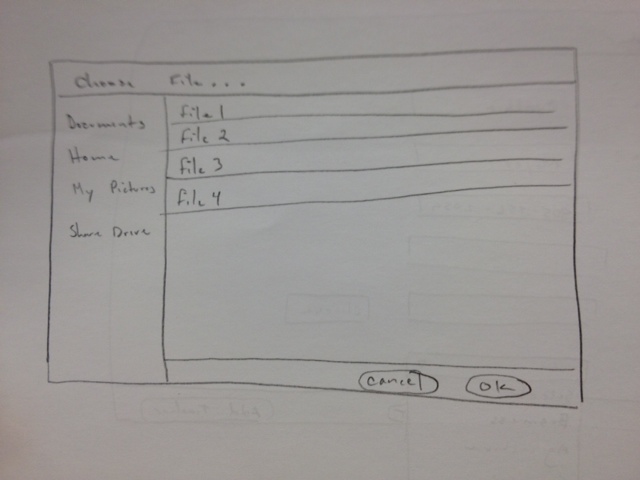 Choose File...
Documents
Home
My Pictures
Share Drive
File 1
File 2
File 3
File 4
Cancel
OK